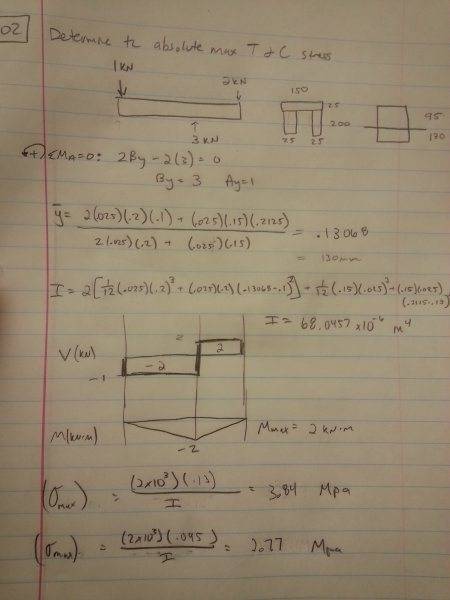 02
Determine te absolute max T & C stress
1kN
2kN
3kN
150
25
200
25 25
95
130
+ ΣMA=0: 2By - 2(3) = 0
By = 3 Ay=1
ȳ = 2(.025)(.2)(.1) + (.025)(.15)(.2125)
2(.025)(.2) + (.025)(.15)
= .13068
= 130mm
I = 2[1/12(.025)(.2)³ + (.025)(.2)(.13068-.1)²] + 1/12(.15)(.025)³ + (.15)(.025)
I = 68.0457 x10⁻⁶ m⁴
V(kN)
-1
-2
2
M(kN·m)
-2
Mmax = 2 kN·m
(σmax) = (2x10³)(.13)
I
= 3.84 Mpa
(σmax) = (2x10³)(.095)
I
= 2.77 Mpa